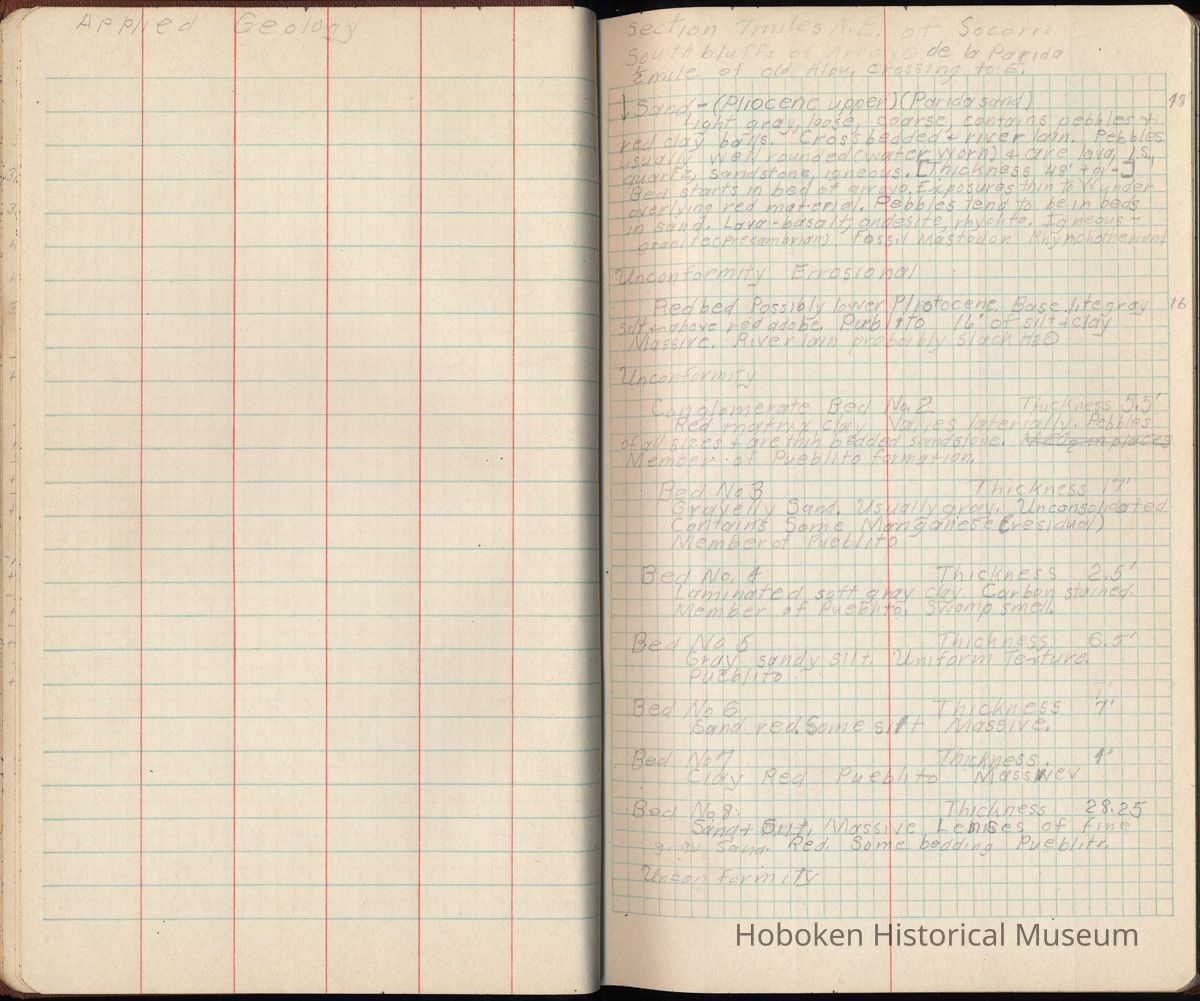 Applied Geology
Section 7 miles N.E. of Socorro
South bluffs of Arroyo de la Parida
½ mile of old Albu. crossing to E.
↓ Sand - (Pliocene upper) (Parida sand) 48
Light gray, loose, coarse, contains pebbles +
red clay balls. Cross bedded + river lain. Pebbles
usually well rounded (water worn) + are lava, L.S.,
quartz, sandstone, igneous. [Thickness 48' + or -]
Bed starts in bed of arroyo. Exposures thin to W under
overlying red material. Pebbles tend to be in beds
in sand. Lava - basalt, andesite, rhyolite. Igneous -
granite (precambrian) Fossil Mastodon
Unconformity Errosional
Red bed Possibly lower Base lite gray 16
silt - above red adobe. 16' of silt + clay
Massive. River lain probably slack H2O
Unconformity
Conglomerate Bed No. 2 Thickness 5.5'
Red matrix clay Varies laterally. Pebbles
of all sizes + are thin bedded sandstone. in places
Member of Pueblito formation.
Bed No 3 Thickness 17'
Gravelly Sand. Usually gray. Unconsolidated
Contains Some Manganese (residual)
Member of Pueblito
Bed No. 4 Thickness 2.5'
Laminated soft gray clay. Carbon stained.
Member of Pueblito. Swamp smell.
Bed No 5 Thichness 6.5'
Gray sandy silt. Uniform Texture.
Pueblito
Bed No 6 Thickness 7'
Sand red. Some silt Massive.
Bed No 7 Thickness. 4'
Clay Red Pueblito
Bed No 8 Thickness 28.25
Sand + Silt. Massive Lenses of fine
gray Sand. Red. Some bedding
Unconformity
Hoboken Historical Museum